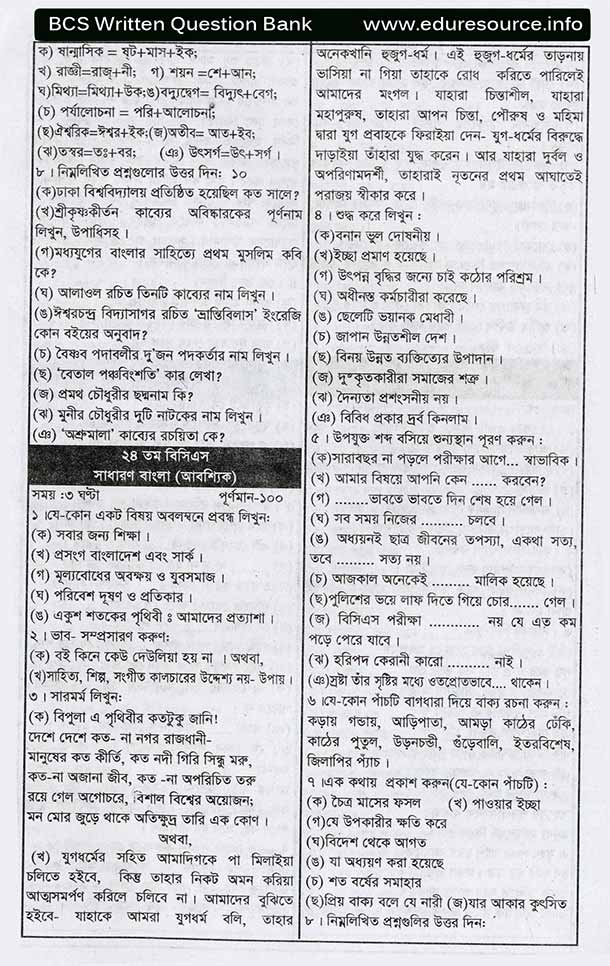 BCS Written Question Bank www.eduresource.info
ক) ষান্মাসিক = ষ্ট+মাস+ইক;
খ) রাজ্ঞী=রাজ্+নী; গ) শয়ন =শে+আন;
ঘ)মিথ্যা=মিথ্যা+উক;ঙ)বদ্যুদ্বেগ= বিদ্যুৎ+বেগ;
(চ) পর্যালোচনা = পরি+আলোচনা;
(ছ)ঐশ্বরিক=ঈশ্বর+ইক;(জ)অতীব= আত+ইব;
(ঝ)তস্বর=তঃ+বর; (ঞ) উৎসর্গ=উৎ+সর্গ।
৮। নিম্নলিখিত প্রশ্নগুলোর উত্তর দিন: ১০
(ক)ঢাকা বিশ্ববিদ্যালয় প্রতিষ্ঠিত হয়েছিল কত সালে?
(খ)শ্রীকৃষ্ণকীর্তন কাব্যের অবিষ্কারকের পূর্ণনাম
লিখুন, উপাধিসহ।
(গ)মধ্যযুগের বাংলার সাহিত্যে প্রথম মুসলিম কবি
কে?
(ঘ) আলাওল রচিত তিনটি কাব্যের নাম লিখুন।
(ঙ)ঈশ্বরচন্দ্র বিদ্যাসাগর রচিত ‘ভ্রান্তিবিলাস’ ইংরেজি
কোন বইয়ের অনুবাদ?
(চ) বৈষ্ণব পদাবলীর দু'জন পদকর্তার নাম লিখুন।
(ছ) ‘বেতাল পঞ্চবিংশতি’ কার লেখা?
(জ) প্রমথ চৌধুরীর ছদ্মনাম কি?
(ঝ) মুনীর চৌধুরীর দুটি নাটকের নাম লিখুন।
(ঞ) ‘অশ্রুমালা’ কাব্যের রচয়িতা কে?
২৪ তম বিসিএস
সাধারণ বাংলা (আবশ্যিক)
সময় :৩ ঘণ্টা পূর্ণমান-১০০
১।যে-কোন একট বিষয় অবলম্বনে প্রবন্ধ লিখুন:
(ক) সবার জন্য শিক্ষা।
(খ) প্রসংগ বাংলাদেশ এবং সার্ক।
(গ) মূল্যবোধের অবক্ষয় ও যুবসমাজ।
(ঘ) পরিবেশ দূষণ ও প্রতিকার।
(ঙ) একুশ শতকের পৃথিবী ঃ আমাদের প্রত্যাশা।
২। ভাব- সম্প্রসারণ করুণ:
(ক) বই কিনে কেউ দেউলিয়া হয় না । অথবা,
(খ)সাহিত্য, শিল্প, সংগীত কালচারের উদ্দেশ্য নয়- উপায়।
৩। সারমর্ম লিখুন:
(ক) বিপুলা এ পৃথিবীর কতটুকু জানি!
দেশে দেশে কত- না নগর রাজধানী-
মানুষের কত কীর্তি, কত নদী গিরি সিন্ধু মরু,
কত-না অজানা জীব, কত -না অপরিচিত তরু
রয়ে গেল অগোচরে, বিশাল বিশ্বের অয়োজন;
মন মোর জুড়ে থাকে অতিক্ষুদ্র তারি এক কোণ।
অথবা,
(খ) যুগধর্মের সহিত আমাদিগকে পা মিলাইয়া
চলিতে হইবে, কিন্তু তাহার নিকট অমন করিয়া
আত্মসমর্পণ করিলে চলিবে না। আমাদের বুঝিতে
হইবে- যাহাকে আমরা যুগধর্ম বলি, তাহার
অনেকখানি হুজুগ-ধর্ম। এই হুজুগ-ধর্মের তাড়নায়
ভাসিয়া না গিয়া তাহাকে রোধ করিতে পারিলেই
আমাদের মংগল। যাহারা চিন্তাশীল, যাহারা
মহাপুরুষ, তাহারা আপন চিন্তা, পৌরুষ ও মহিমা
দ্বারা যুগ প্রবাহকে ফিরাইয়া দেন- যুগ-ধর্মের বিরুদ্ধে
দাড়াইয়া তাঁহারা যুদ্ধ করেন। আর যাহারা দুর্বল ও
অপরিণামদর্শী, তাহারাই নূতনের প্রথম আঘাতেই
পরাজয় স্বীকার করে।
৪। শুদ্ধ করে লিখুন :
(ক)বনান ভুল দোষনীয়।
(খ)ইচ্ছা প্রমাণ হয়েছে।
(গ) উৎপন্ন বৃদ্ধির জন্যে চাই কঠোর পরিশ্রম।
(ঘ) অধীনস্ত কর্মচারীরা করেছে।
(ঙ) ছেলেটি ভয়ানক মেধাবী।
(চ) জাপান উন্নতশীল দেশ।
(ছ) বিনয় উন্নত ব্যক্তিত্যের উপাদান।
(জ) দুষ্কৃতকারীরা সমাজের শত্রু ।
(ঝ) দৈন্যতা প্রশংসনীয় নয়।
(ঞ) বিবিধ প্রকার দ্রর্ব কিনলাম।
৫। উপযুক্ত শব্দ বসিয়ে শুন্যস্থান পূরণ করুন :
(ক)সারাবছর না পড়লে পরীক্ষার আগে... স্বাভাবিক।
(খ) আমার বিষয়ে আপনি কেন ...... করবেন?
(গ) ........ভাবতে ভাবতে দিন শেষ হয়ে গেল।
(ঘ) সব সময় নিজের .......... চলবে।
(ঙ) অধ্যয়নই ছাত্র জীবনের তপস্যা, একথা সত্য,
তবে .......... সত্য নয়।
(চ) আজকাল অনেকেই ......... মালিক হয়েছে।
(ছ)পুলিশের ভয়ে লাফ দিতে গিয়ে চোর....... গেল।
(জ) বিসিএস পরীক্ষা .......... নয় যে এত কম
পড়ে পেরে যাবে।
(ঝ) হরিপদ কেরানী কারো .......... নাই।
(ঞ)স্রষ্টা তাঁর সৃষ্টির মধ্যে ওতপ্রোতভাবে.... থাকেন।
৬।যে-কোন পাঁচটি বাগধারা দিয়ে বাক্য রচনা করুন :
কড়ায় গন্ডায়, আড়িপাতা, আমড়া কাঠের ঢেঁকি,
কাঠের পুতুল, উড়নচন্ডী, গুঁড়েবালি, ইতরবিশেষ,
জিলাপির প্যাঁচ।
৭।এক কথায় প্রকাশ করুন(যে-কোন পাঁচটি) :
(ক) চৈত্র মাসের ফসল (খ) পাওয়ার ইচ্ছা
(গ)যে উপকারীর ক্ষতি করে
(ঘ)বিদেশ থেকে আগত
(ঙ) যা অধ্যয়ণ করা হয়েছে
(চ) শত বর্ষের সমাহার
(ছ)প্রিয় বাক্য বলে যে নারী (জ)যার আকার কুৎসিত
৮। নিম্নলিখিত প্রশ্নগুলির উত্তর দিন: